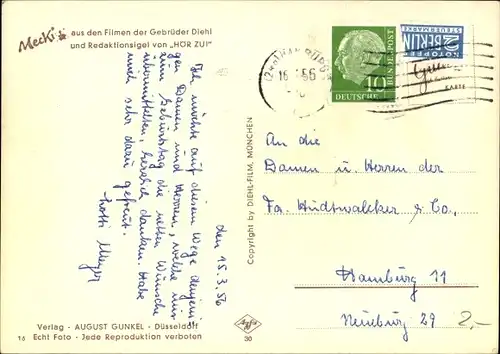 Mecki
aus den Filmen der Gebrüder Diehl
und Redaktionsigel von „HÖR ZU!"
den 15.3.56
Ich möchte auf diesem Wege denjeni-
gen Damen und Herren, welche mir
zum Geburtstag die netten Wünsche
übermittelten, herzlich danken. Habe
mich sehr darüber gefreut.
Lotti Meyer
Copyright by DIEHL-FILM, MÜNCHEN
HAMBURG
16
56
10
DEUTSCHE
BUNDESPOST
2 NOTOPFER
BERLIN
STEUERMARKE
KARTE
An die
Damen u. Herren der
Fa. Hudtwalcker & Co.,
Hamburg 11
Neueburg 29
2,-
Verlag · AUGUST GUNKEL · Düsseldorf
16 Echt Foto · Jede Reproduktion verboten
Agfa
30